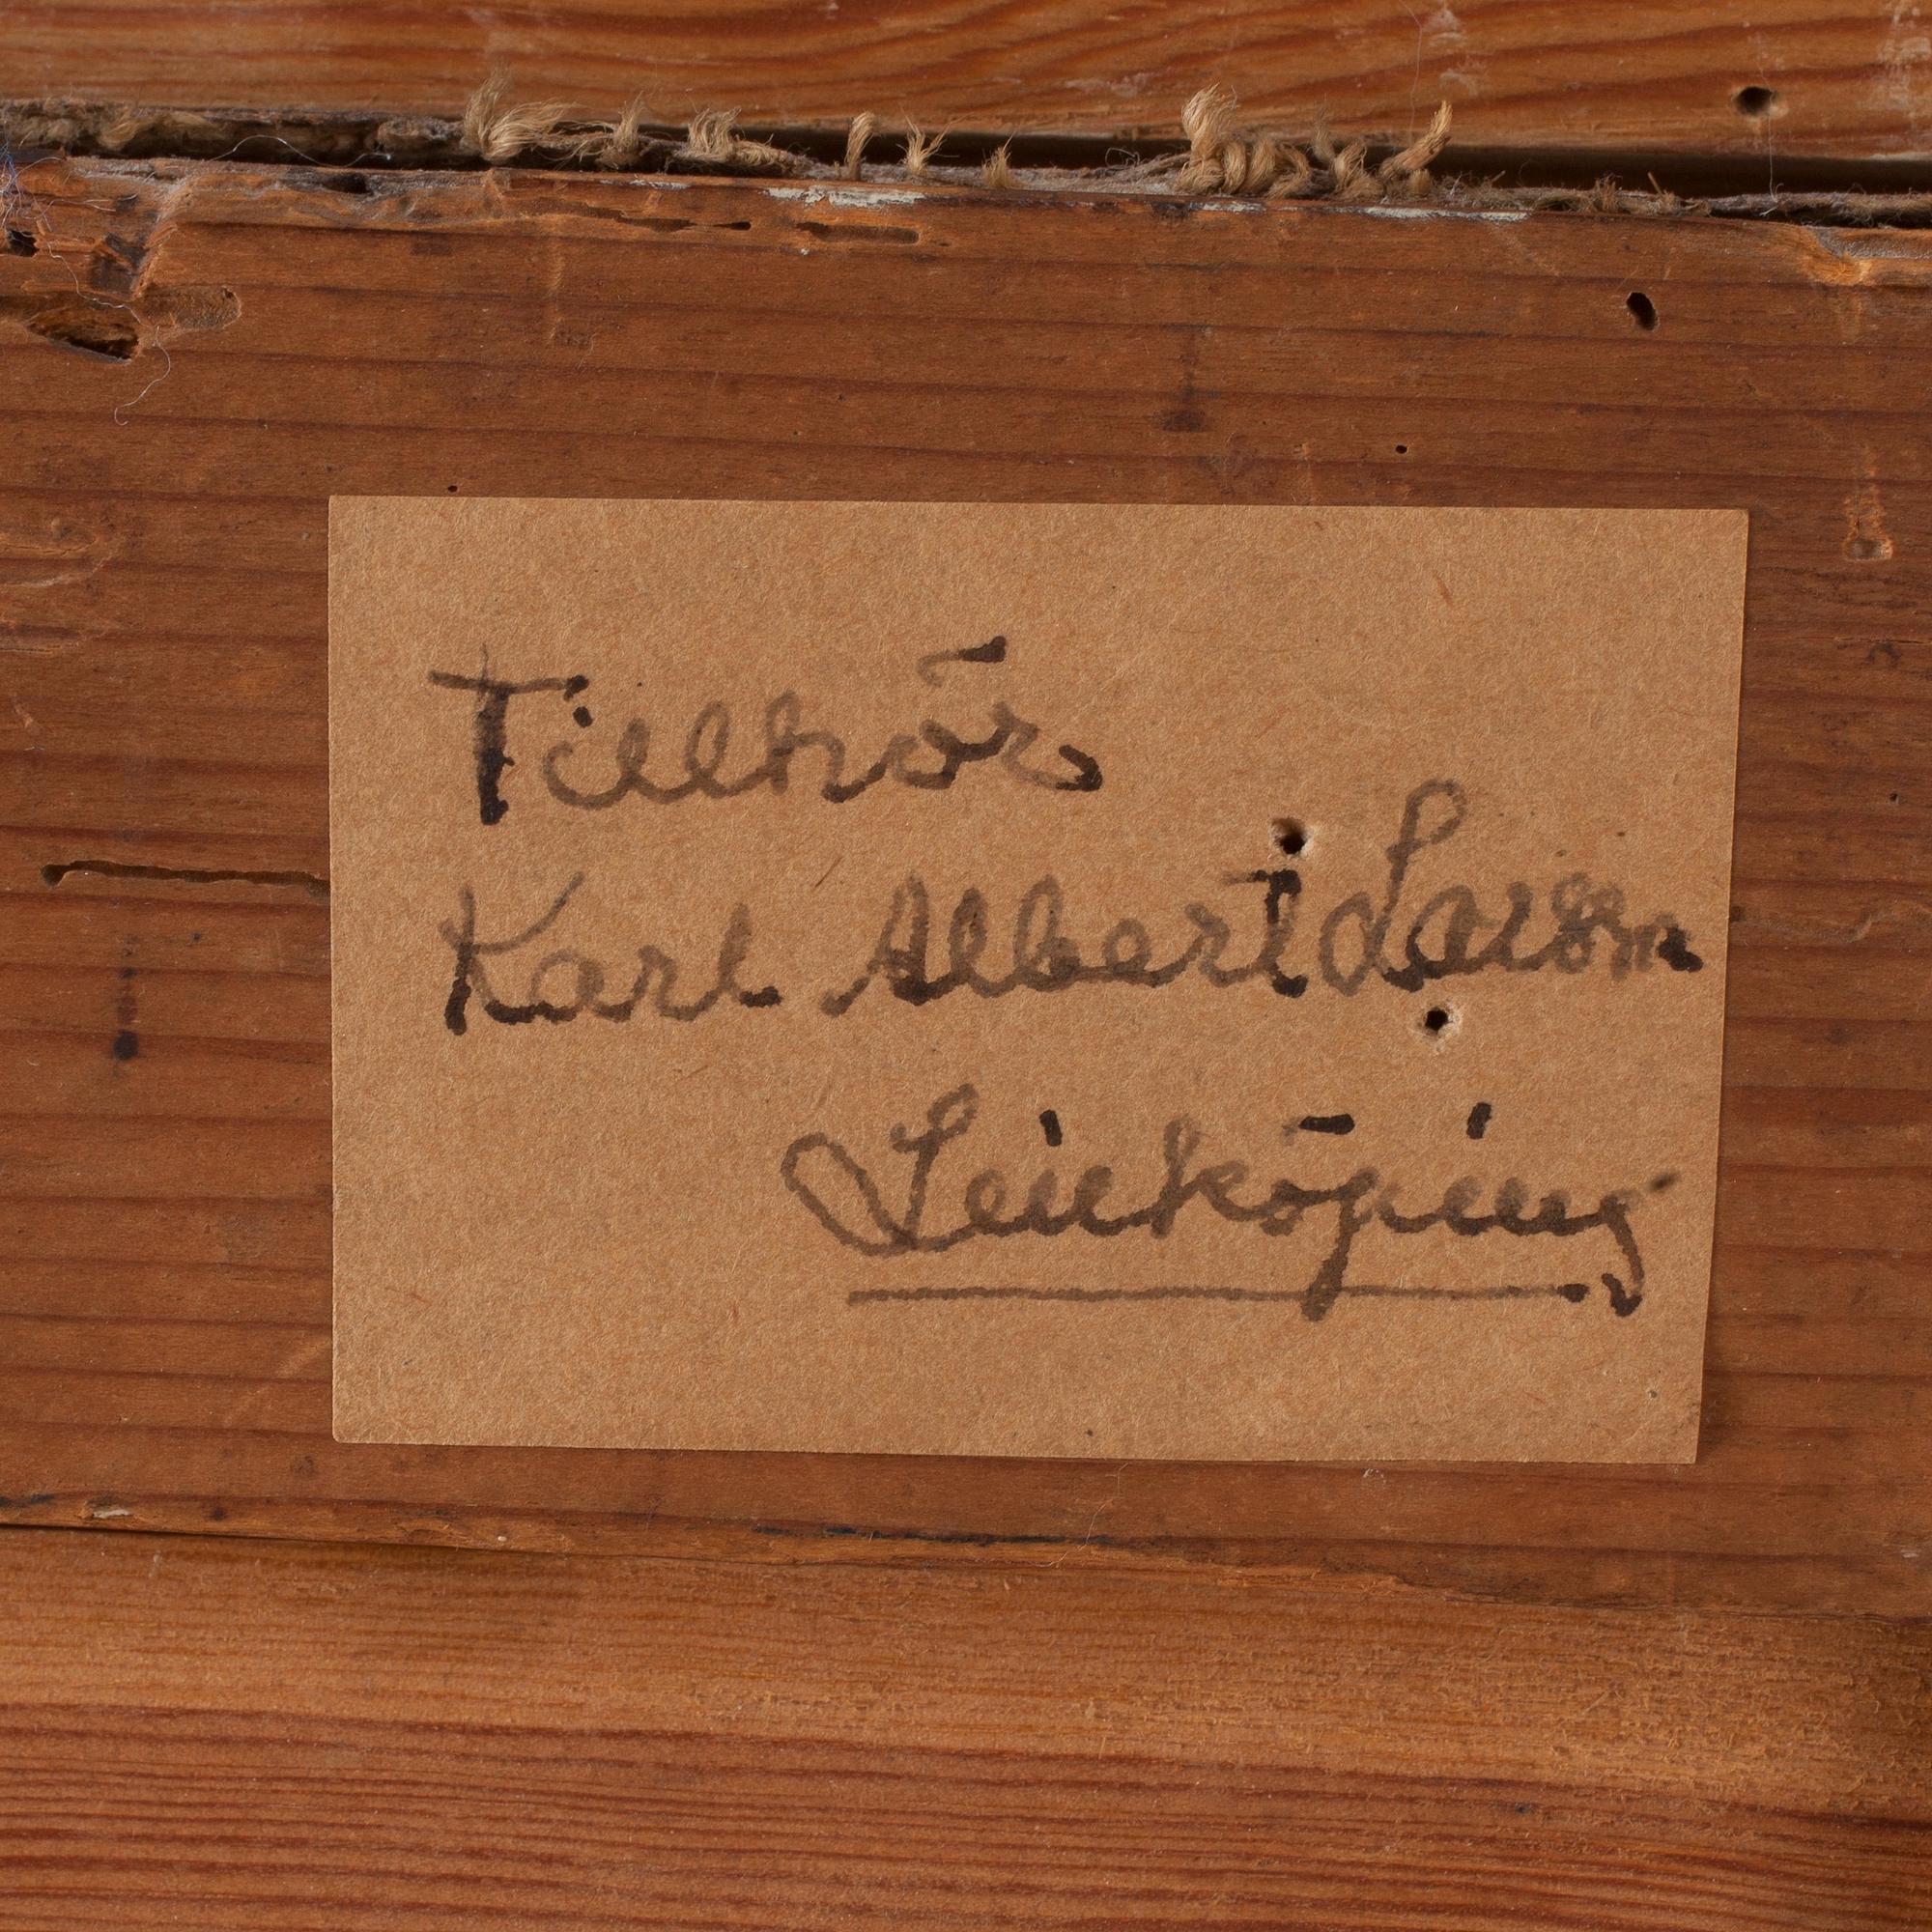 Tillhör
Karl Albert Larsson
Linköping